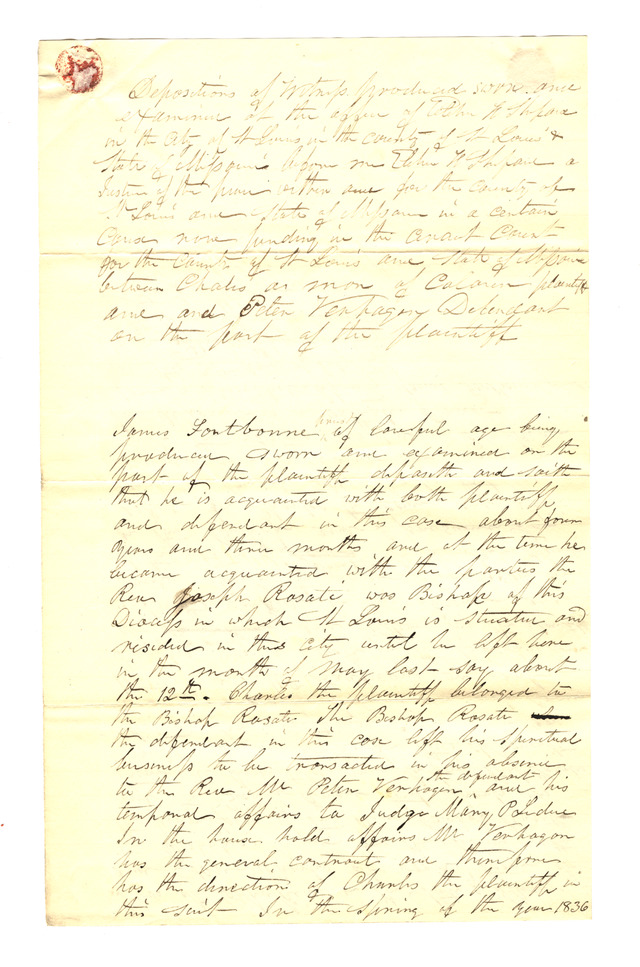 Depositions of Witness produced sworn and
examined at the office of Elihu H Shepard
in the City of St Louis in the county of St Louis &
State of Missouri before me Elihu H Shepard a
Justice of the peace within and for the county of
St Louis and State of Missouri in a certain
Cause now pending in the Circuit Court
for the County of St Louis and State of Missouri
between Charles a man of Colour plaintiff
and Peter Verhagen Defendant
on the part of the plaintiff
James Fontbonne of lawful age being
produced sworn and examined on the
part of the plaintiff deposeth and saith
that he is acquainted with both plaintiff
and defendant in this case about four
years and three months and at the time he
became acquainted with the parties the
Revd Joseph Rosati was Bishop of this
Diocess in which St Louis is situated and
resided in this city until he left here
in the month of May last say about
the 12th. Charles the plaintiff belonged to
the Bishop Rosati The Bishop Rosati
the defendant in this case left his spiritual
business to be transacted in his absence
to the Rev Mr Peter Verhagen the defendant and his
temporal affairs to Judge Mary P Leduc
In the house hold affairs Mr Verhagen
has the general controul and therefore
has the direction of Charles the plaintiff in
this suit In the Spring of the year 1836